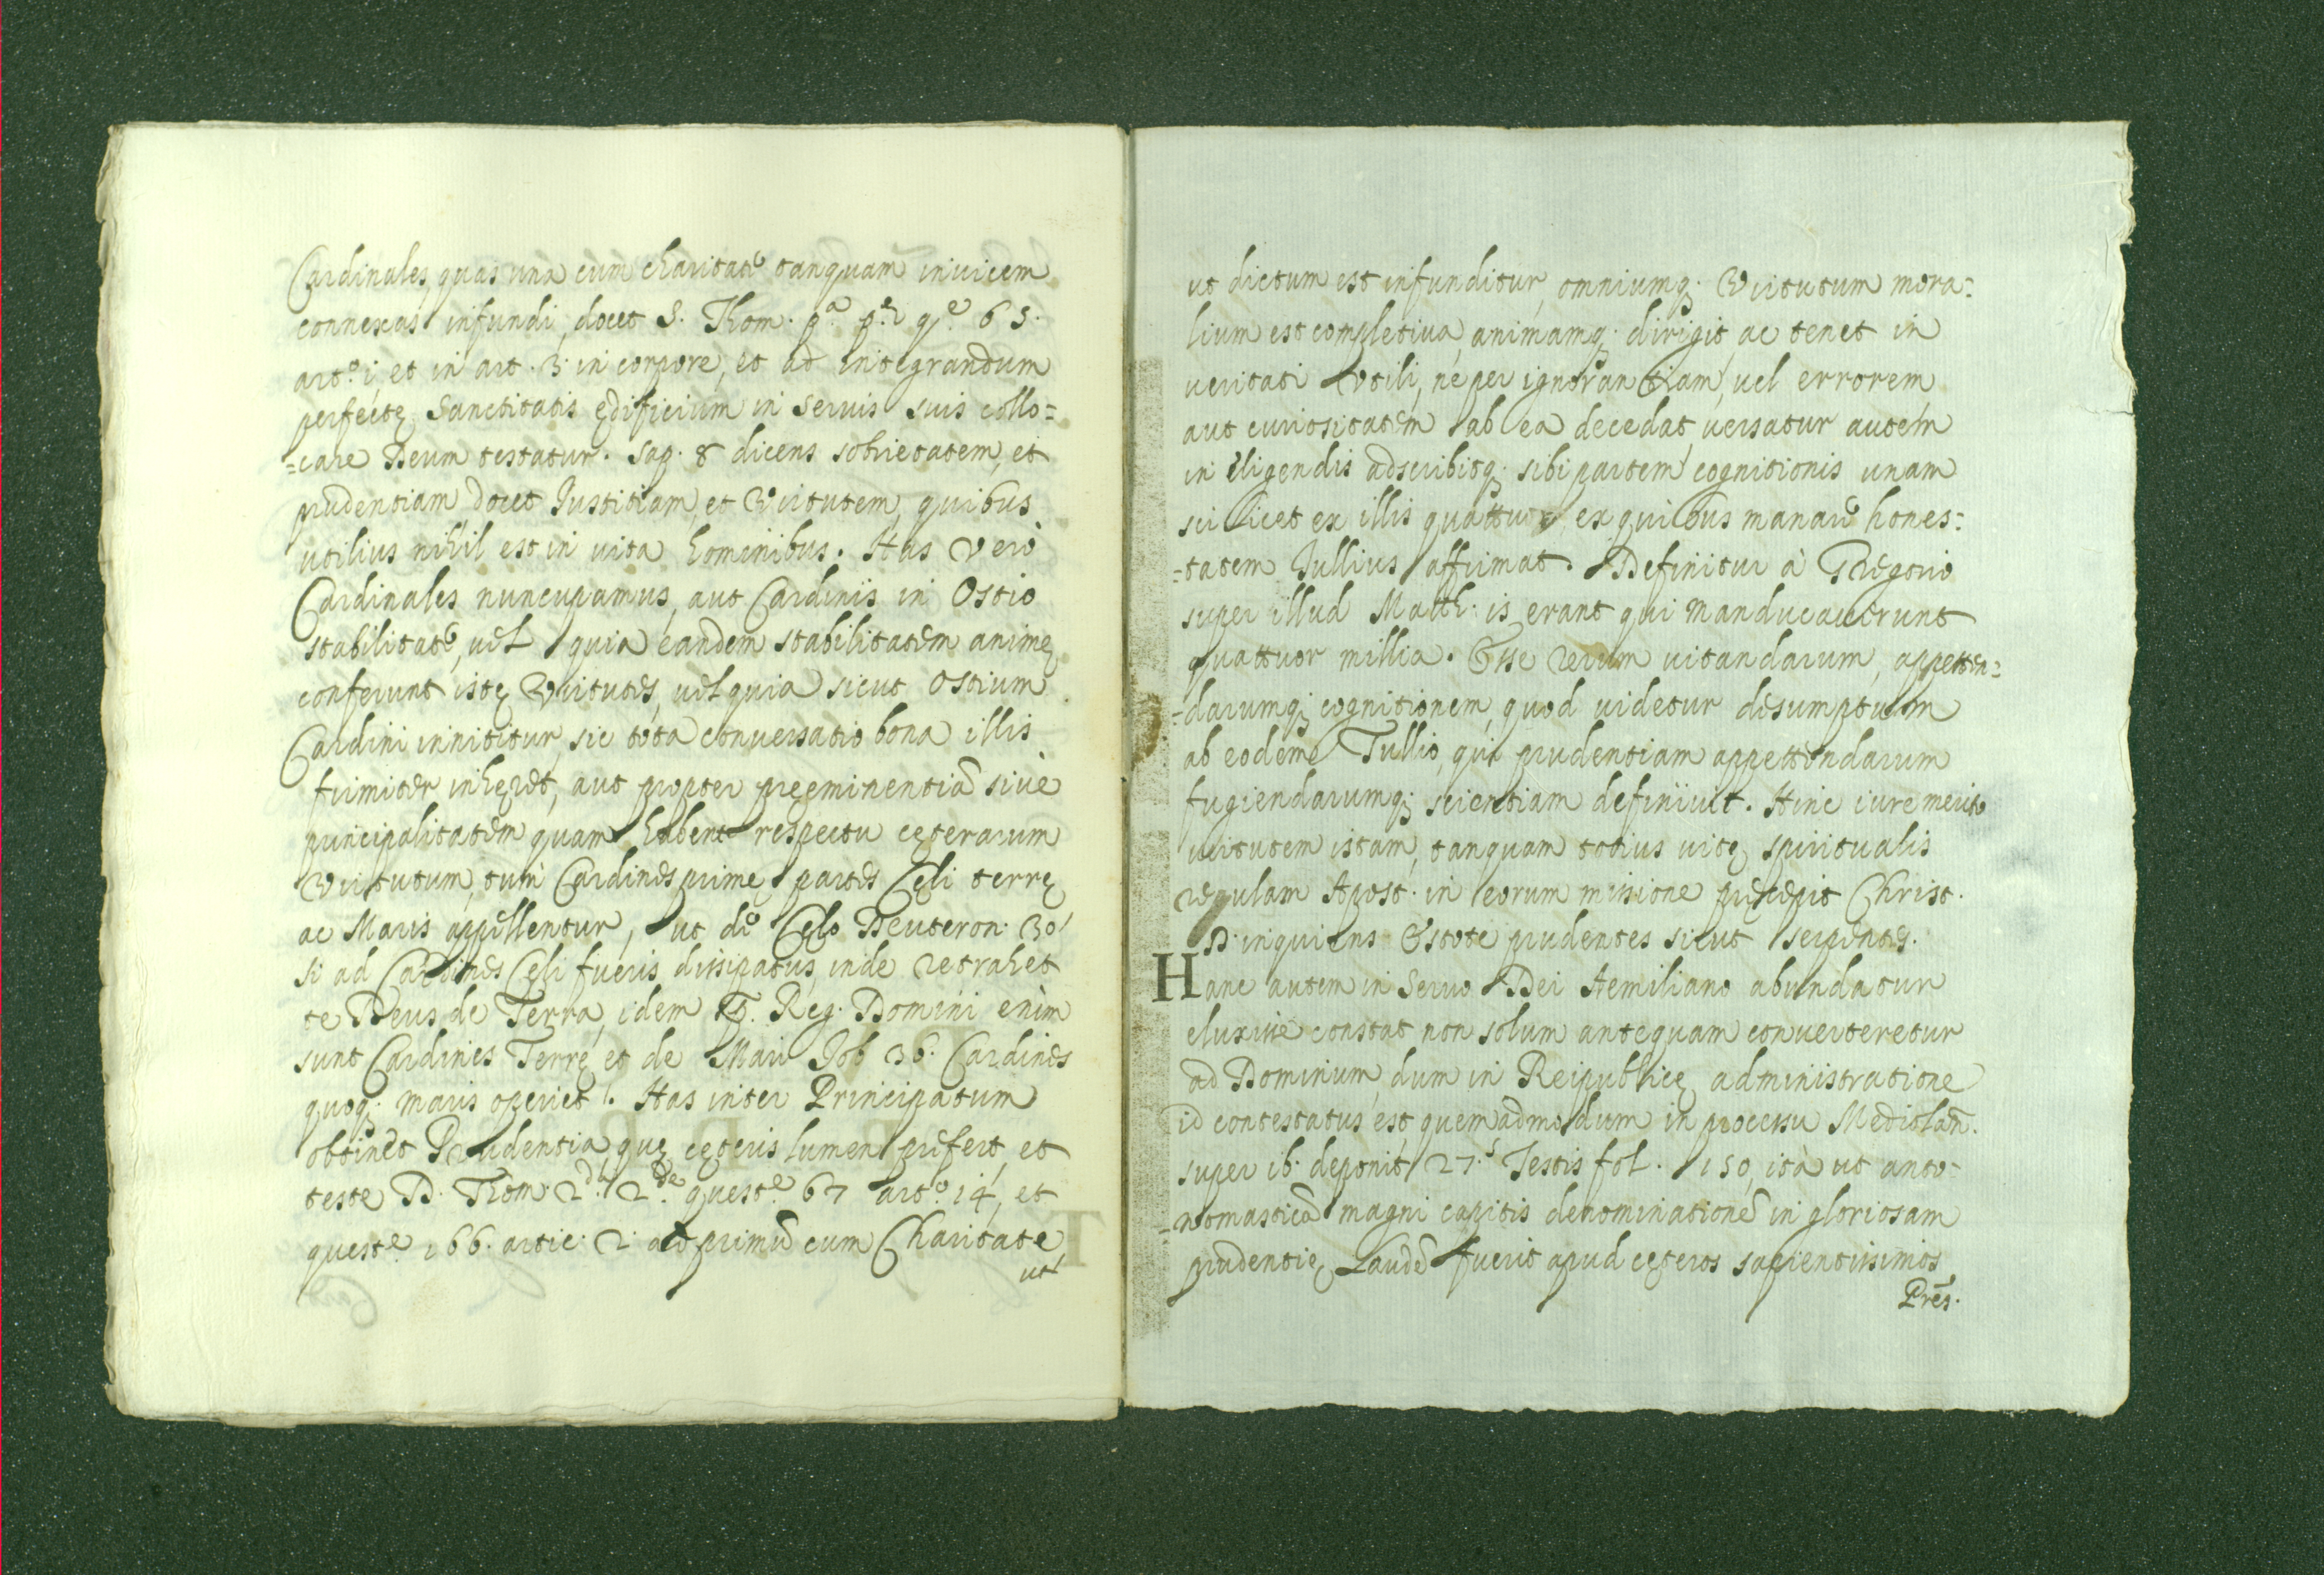 Cardinales, quas una cum charitate tanquam invicem
connexas infundi, docet S. Thom. pª. pᵉ. qᵉ. 65.
artº. i, et in art. 3. in corpore, et ad integrandum
perfectę Sanctitatis ędificium in servis suis collo=
=care Deum testatur. Sap. 8 dicens sobrietatem, et
prudentiam docet Justitiam, et Virtutem, quibus
utilius nihil est in vita hominibus. Has Verò
Cardinales nuncupamus, aut Cardinis in Ostio
stabilitate, vel quia eandem stabilitatem animę
conferunt istę Virtutes, vel quia sicut Ostium
Cardini innititur, sic tota conversatio bona illis
firmiter inhęret, aut propter preeminentiã sive
principalitatem quam habent respectu cęterarum
Virtutum, cum Cardines prime partes Cęli terrę
ac Maris appellentur, ut de Cęlo Deuteron. 30
si ad Cardines Cęli fueris dissipatus, inde retrahet
te Deus de Terra, idem Reg. Domini enim
sunt Cardines Terrę, et de Mari Job 36. Cardines
quoq; maris operiet. Has inter Principatum
obtinet Prudentia, quę cęteris lumen prefert, et
teste D. Thom. 2dª. 2de. queste. 67 artº. 14, et
queste. 166. artic. 2. ad primũ cum Charitate,
ut
ut dictum est infunditur, omniumq; Virtutum mora=
lium est completiva, animamq; dirigit, ac tenet in
veritati Utili, ne per ignorantiam, vel errorem
aut curiositatem ab ea decedat, versatur autem
in eligendis adscribitq; sibi partem cognitionis unam
scilicet ex illis quattuor, ex quibus manare hones=
=tatem Jullius affirmat. Definitur à Gregorio
super illud Matth: is erant qui manducaverunt
quattuor millia. Esse rerum vitandarum, appetten=
=darumq; cognitionem, quod videtur desumptum
ab eodem Tullio, qui prudentiam appettendarum
fugiendarumq; scientiam definivit. Hinc iure merito
virtutem istam, tanquam totius vitę spiritualis
regulam Apost. in eorum missione pręcepit Christ.
D. inquiens Estote prudentes sicut serpentes.
Hanc autem in Servo Dei Aemiliano abundatur
eluxisse constat non solum antequam converteretur
ad Dominum, dum in Reipublicę administratione
id contestatus est, quemadmodum in processu Mediolañ.
super ib. deponit 27.s Testis fol. 150, ità ut anto-
=nomasticã magni capitis denominationẽ in gloriosam
prudentię Laudẽ fuerit apud cęteros sapientissimos
Pres.